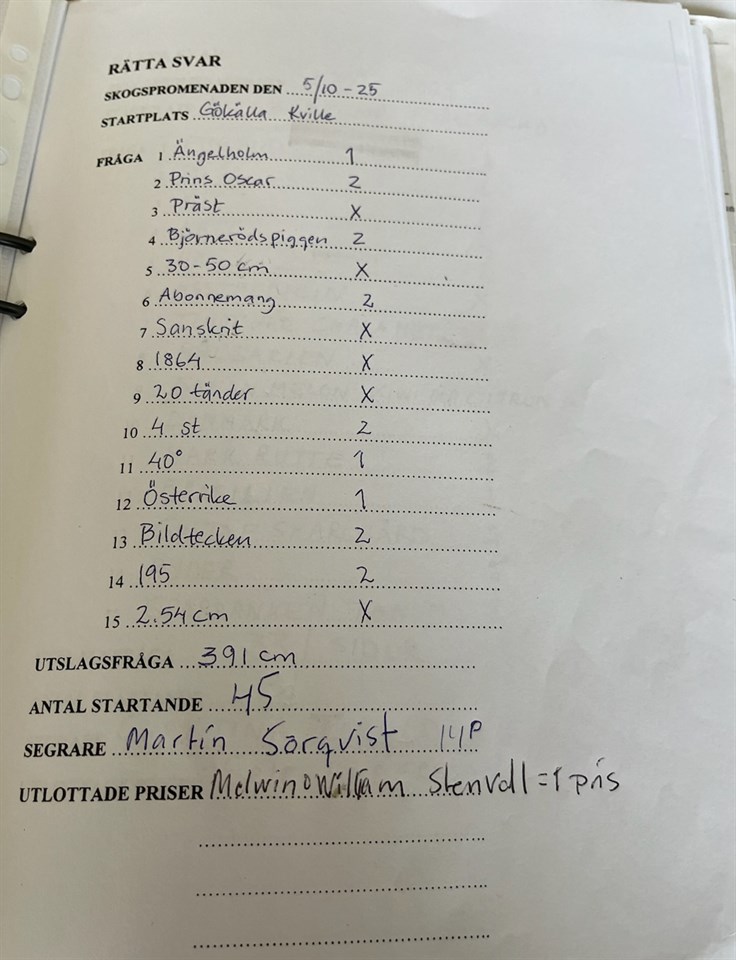 RÄTTA SVAR
SKOGSPROMENADEN DEN 5/10-25
STARTPLATS Gökälla Kville
FRÅGA 1 Ängelholm 1
2 Prins Oscar 2
3 Präst X
4 Björnerödspiggen 2
5 30-50 cm X
6 Abonnemang 2
7 Sanskrit X
8 1864 X
9 20 tänder X
10 4 st 2
11 40° 1
12 Österrike 1
13 Bildtecken 2
14 195 2
15 2.54 cm X
UTSLAGSFRÅGA 391 cm
ANTAL STARTANDE 45
SEGRARE Martin Sörqvist 14P
UTLOTTADE PRISER Melwin o William Stenvall = 1 pris